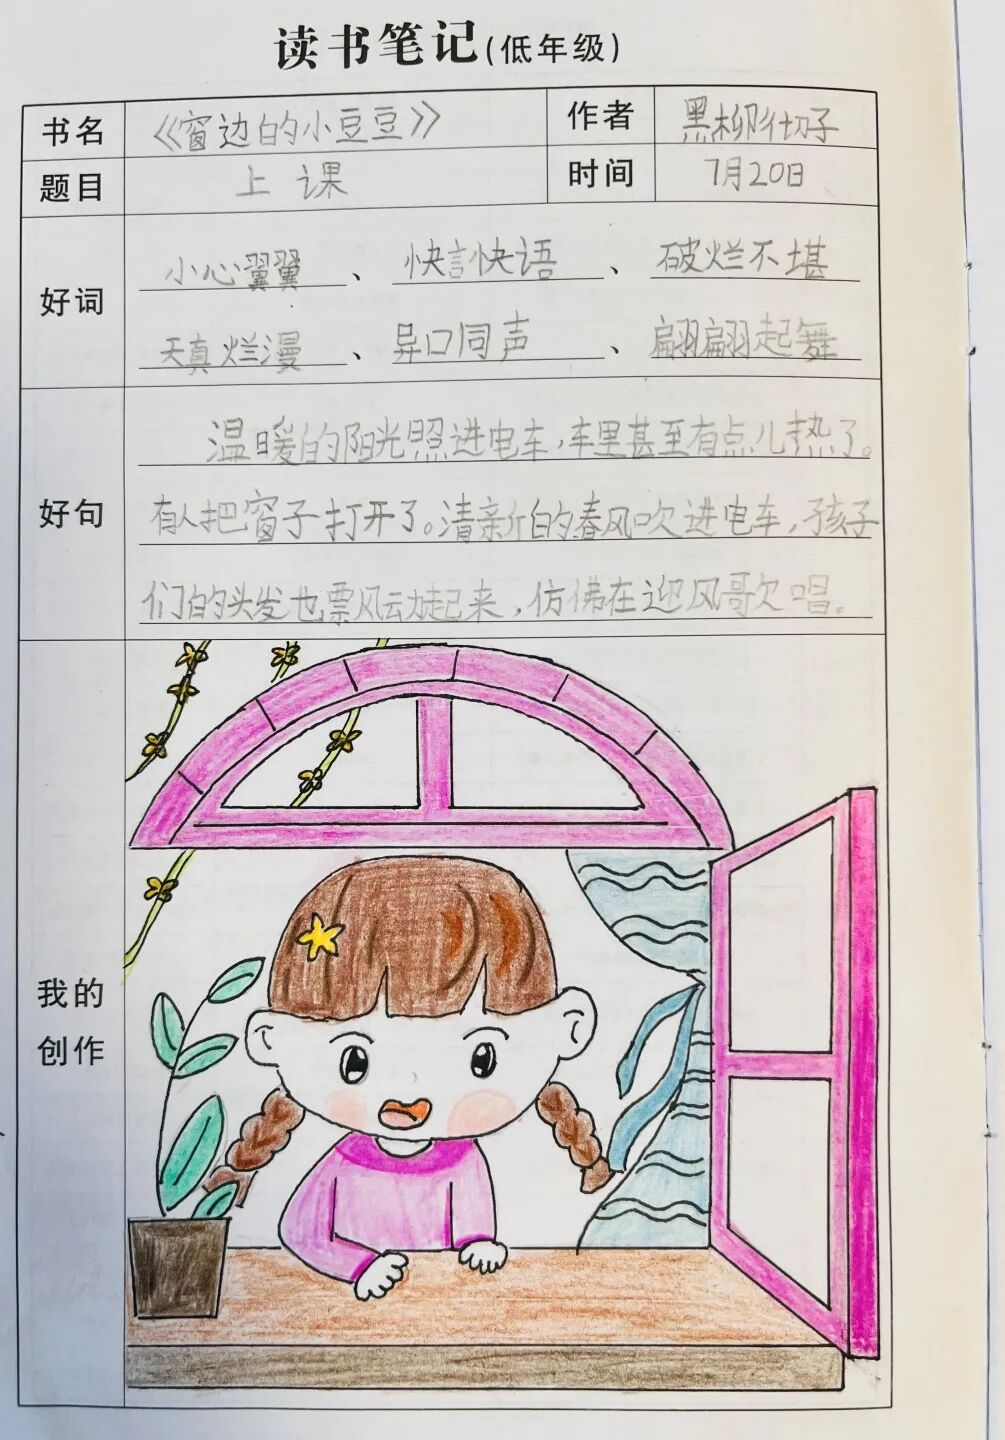 读书笔记(低年级)
书名 《窗边的小豆豆》 作者 黑柳彻子
题目 上课 时间 7月20日
好词 小心翼翼、快言快语、破烂不堪
天真烂漫、异口同声、翩翩起舞
好句 温暖的阳光照进电车,车里甚至有点儿热了。
有人把窗子打开了。清新的春风吹进电车,孩子
们的头发也飘动起来,仿佛在迎风歌唱。
我的
创作